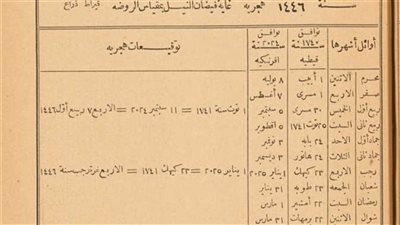 سنة ١٤٤٦ هجرية غاية فيضان النيل بمقياس الروضه قيراط ذراع
أوائل أشهرها توافق ١٧٤٠ قبطيه توافق ٢٠٢٤ افرنكيه توقيعات هجريه
محرم الاثنين ١ أبيب ٨ يوليه
صفر الاربع ١ مسرى ٧ أغسطس
ربيع أول الخميس ٣٠ مسرى ٥ سبتمبر ١ توت سنة ١٧٤١ = ١١ سبتمبر ٢٠٢٤ = الاربع ٧ ربيع أول ١٤٤٦
ربيع ثانى السبت ٢٥ توت ١٧٤١ ٥ اكتوبر
جماد أول الاحد ٢٤ بابه ٣ نوفمبر
جماد ثانى الثلاث ٢٤ هاتور ٣ ديسمبر
رجب الاربع ٢٣ كيهك ١ يناير ٢٠٢٥ ١ يناير ٢٠٢٥ = ٢٣ كيهك ١٧٤١ = الاربع غرة رجب سنة ١٤٤٦
شعبان الجمعه ٢٣ طوبه ٣١ يناير
رمضان السبت ٢٢ أمشير ١ مارس
شوال الاثنين ٢٢ برمهات ٣١ مارس